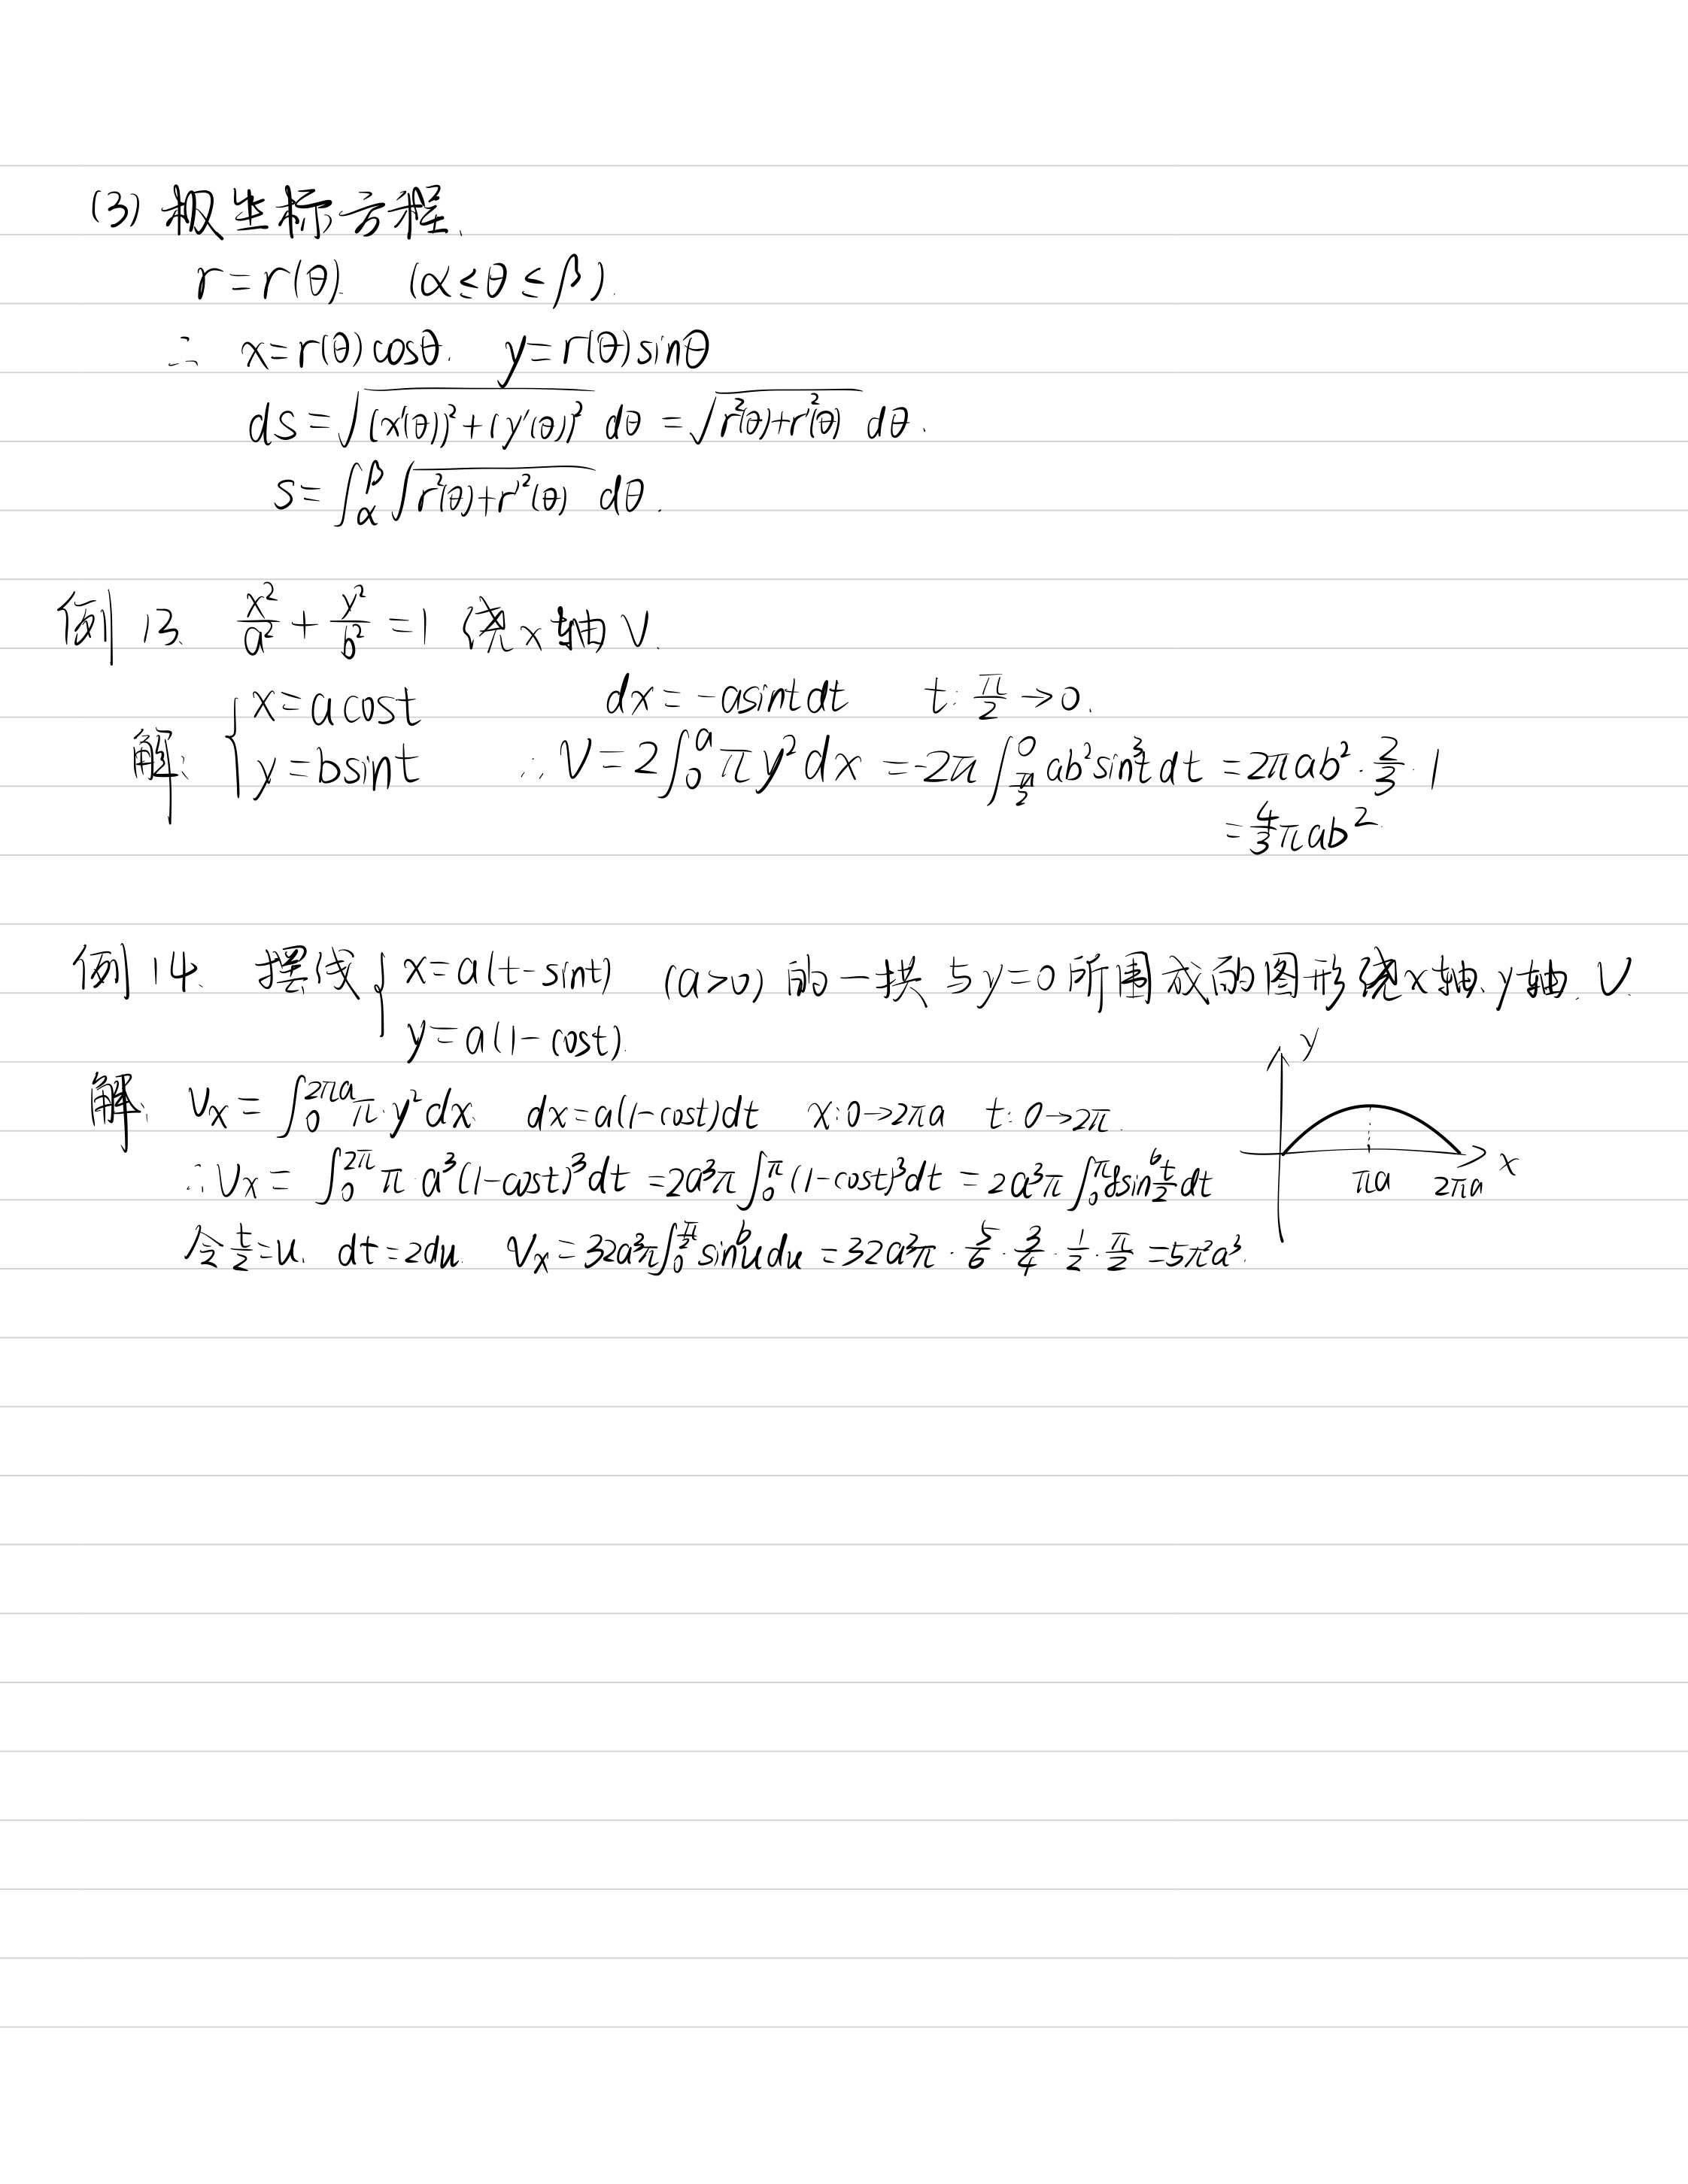 (3) 极坐标方程.
r=r(θ). (α≤θ≤β).
∴ x=r(θ)cosθ. y=r(θ)sinθ
ds=√((x'(θ))²+(y'(θ))²) dθ =√(r²(θ)+r'²(θ)) dθ.
s=∫_α^β √(r²(θ)+r'²(θ)) dθ.
例13. x²/a² + y²/b² =1 绕x轴V.
解: {x=acost y=bsint dx=-asintdt t: π/2→0.
∴ V=2∫_0^a πy²dx =-2π∫_{π/2}^0 ab²sin³tdt =2πab²·2/3·1
=4/3πab²
例14. 摆线{x=a(t-sint) y=a(1-cost). (a>0) 的一拱与y=0所围成的图形绕x轴、y轴. V.
解. Vx=∫_0^{2πa} π·y²dx. dx=a(1-cost)dt x:0→2πa t:0→2π.
∴Vx= ∫_0^{2π} π a³(1-cost)³dt =2a³π∫_0^π (1-cost)³dt = 2a³π∫_0^π 8sin⁶ t/2 dt
令t/2=u. dt=2du. Vx=32a³π∫_0^{π/2} sin⁶udu =32a³π·5/6·3/4·1/2·π/2=5π²a³.
y
x
πa
2πa